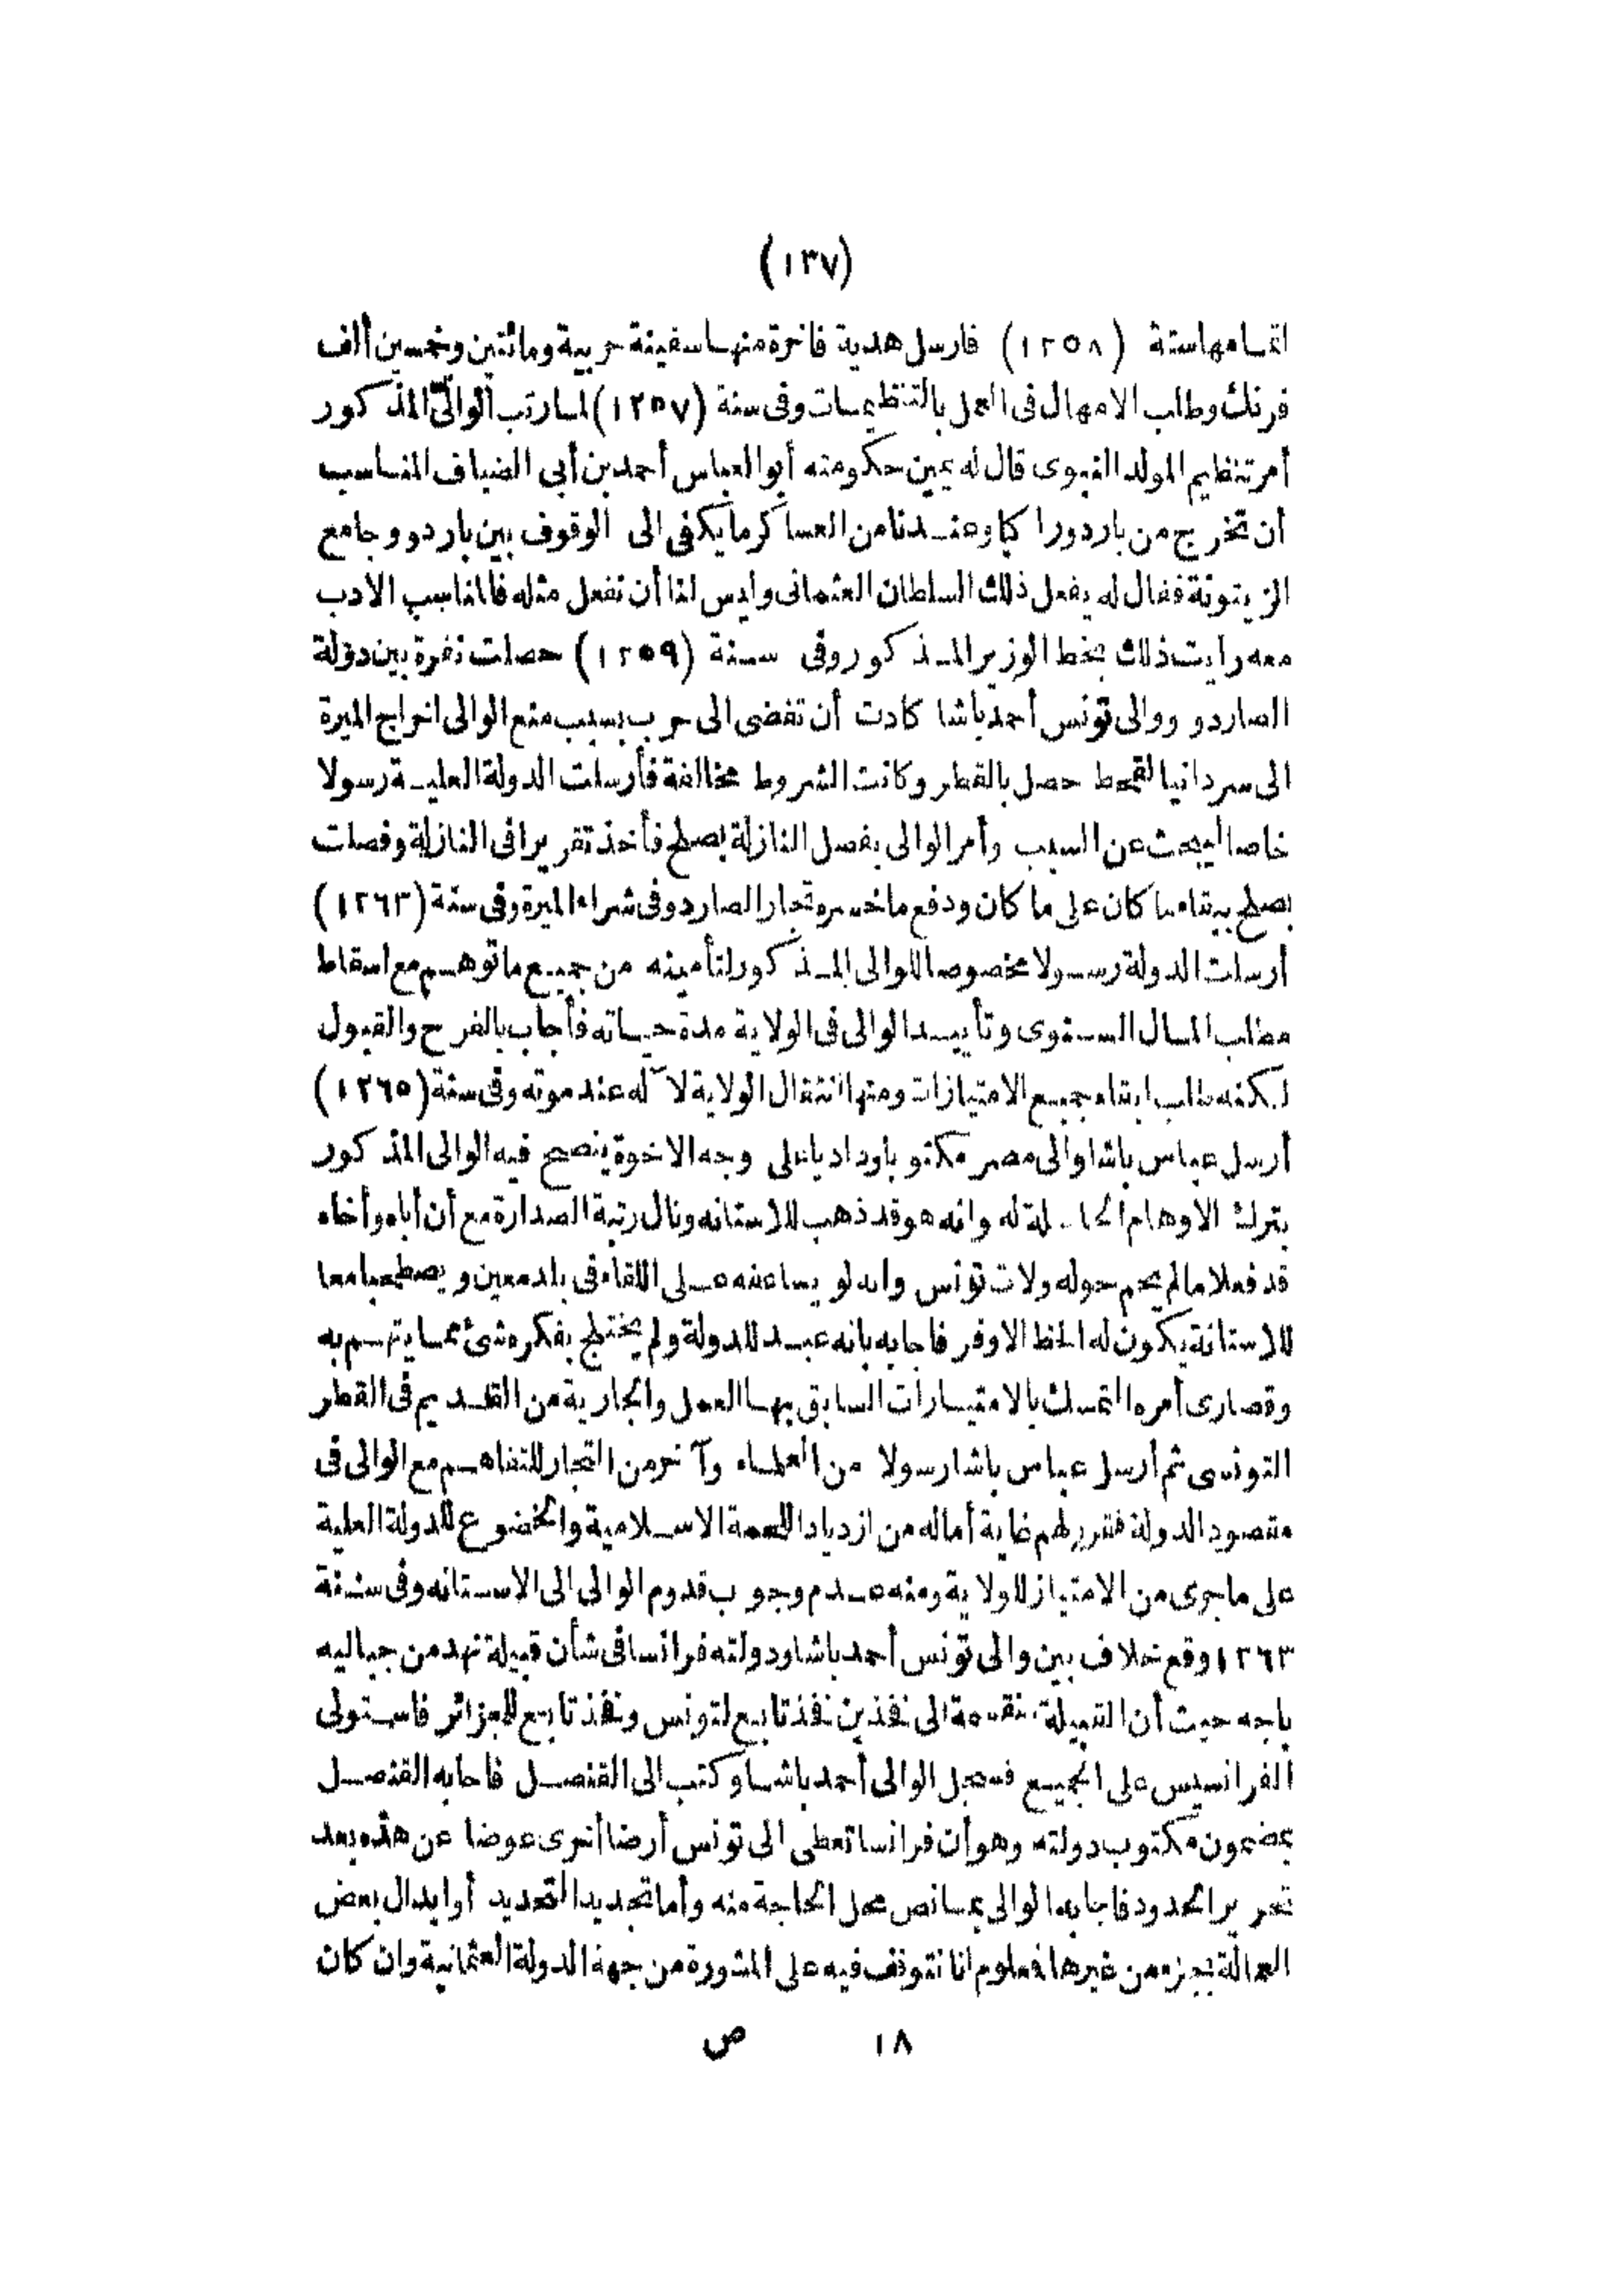 (١٣٧)
اتمامها سنة (١٢٥٨) فارسل هدية فاخرة منها سفينة حربية ومائتين وخمسين ألف
فرنك وطلب الامهال فى العمل بالتنظيمات وفى سنة (١٢٥٧) لما رتب الوالى المذكور
أمر تنظيم المولد النبوى قال له يمين حكومته أبو العباس أحمد بن أبى الضياف المناسب
أن تخرج من باردو راكبا وعندنا من العساكر ما يكفى الى الوقوف بين باردو وجامع
الزيتونة فقال له يفعل ذلك السلطان العثمانى وليس لنا أن نفعل مثله فالمناسب الادب
معه رايت ذلك بخط الوزير المذكور وفى سنة (١٢٥٩) حصلت نفرة بين دولة
الصاردو ووالى تونس أحمد باشا كادت أن تفضى الى حرب بسبب منع الوالى اخراج الميرة
الى سردانيا لقحط حصل بالقطر وكانت الشروط مخالفة فأرسلت الدولة العلية رسولا
خاصا ليبحث عن السبب وأمر الوالى بفصل النازلة بصلح فأخذ تقريرا فى النازلة وفصلت
بصلح ببقاء ما كان على ما كان ودفع ما خسره تجار الصاردو فى شراء الميرة وفى سنة (١٢٦٣)
أرسلت الدولة رسولا مخصوصا للوالى المذكور لتأمينه من جميع ما توهم مع اسقاط
مطلب المال السنوى وتأييد الوالى فى الولاية مدة حياته فأجاب بالفرح والقبول
لكنه طلب ابقاء جميع الامتيازات ومنها انتقال الولاية لآله عند موته وفى سنة (١٢٦٥)
أرسل عباس باشا والى مصر مكتوبا وداديا على وجه الاخوة ينصح فيه الوالى المذكور
بترك الاوهام الحاملة له وانه هو قد ذهب للاستانه ونال رتبة الصدارة مع أن أباه وأخاه
قد فعلا ما لم يحم حوله ولات تونس وانه لو يساعنه على اللقاء فى بلد معين ويصطحبا معا
للاستانة يكون له الحظ الاوفر فاجابه بانه عبد للدولة ولم يختلج بفكره شئ مما يتهم به
وقصارى أمره التمسك بالامتيازات السابق بها العمل والجارية من القديم فى القطر
التونسى ثم أرسل عباس باشا رسولا من العلماء وآخر من التجار للتفاهم مع الوالى فى
مقصود الدولة فقرر لهم غاية أماله من ازدياد اللحمة الاسلامية والخضوع للدولة العلية
على ما جرى من الامتياز للولاية ومنه عدم وجوب قدوم الوالى الى الاستانه وفى سنة
١٢٦٣ وقع خلاف بين والى تونس أحمد باشا ودولته فرانسا فى شأن قبيلة نهد من جباليه
باجه حيث أن القبيلة منقسمة الى فخذين فخذ تابع لتونس وفخذ تابع للجزائر فاستولى
الفرانسيس على الجميع فسجل الوالى أحمد باشا وكتب الى القنصل فاجابه القنصل
بمضمون مكتوب دولته وهو أن فرانسا تعطى الى تونس أرضا أخرى عوضا عن هذه بعد
تحرير الحدود فاجابه الوالى بما نص محل الحاجة منه وأما تجديد التحديد أو ابدال بعض
العمالة بجزء من غيرها فمعلوم انا نتوقف فيه على المشورة من جهة الدولة العثمانية وان كان
١٨ ص